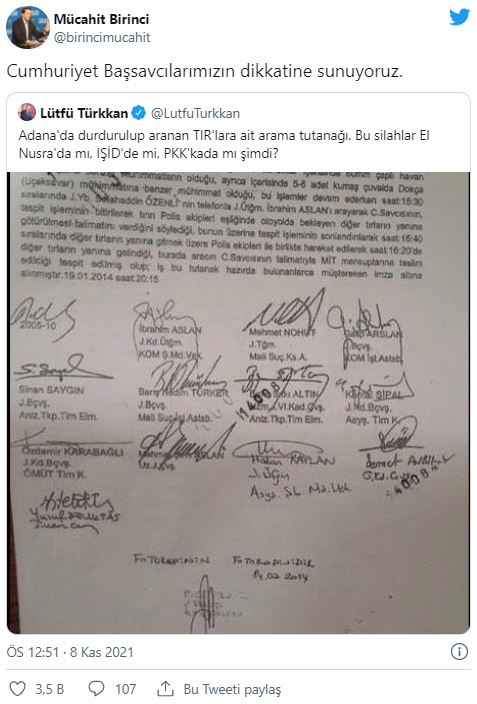 Mücahit Birinci
@birincimucahit
Cumhuriyet Başsavcılarımızın dikkatine sunuyoruz.
Lütfü Türkkan @LutfuTurkkan
Adana'da durdurulup aranan TIR'lara ait arama tutanağı. Bu silahlar El
Nusra'da mı, IŞİD'de mi, PKK'kada mı şimdi?
mühimmatların olduğu, ayrıca içerisinde 5-6 adet kumaş çuvalda Dokça
(Uçaksavar) mühimmatına benzer mühimmat olduğu, bu işlemler devam ederken saat:15:30
sıralarında J.Yb. Selahaddin ÖZENLİ'nin telefonla J.Üğm. İbrahim ASLAN'ı arayarak C.Savcısının,
tespit işleminin bitirilerek tırın Polis ekipleri eşliğinde otoyolda bekleyen diğer tırların yanına
götürülmesi talimatını verdiğini söylediği, bunun üzerine tespit işleminin sonlandırılarak saat:15:40
sıralarında diğer tırların yanına gitmek üzere Polis ekipleri ile birlikte hareket edilerek saat:16:20'de
diğer tırların yanına gelindiği, burada aracın C.Savcısının talimatıyla MİT mensuplarına teslim
edildiği tespit edilmiş olup; iş bu tutanak hazırda bulunanlarca müştereken imza altına
alınmıştır.19.01.2014 saat:20:15
2005-10
İbrahim ASLAN
J.Kd.Üğm.
KOM Ş.Md.Vek.
Mehmet NOHUT
J.Tğm.
Mali Suç.Ks.A.
ARSLAN
Bçvş.
KOM İşl.Astsb.
Sinan SAYGIN
J.Bçvş.
Anlz.Tkp.Tim Elm.
Barış TÜRKER
J.Bçvş.
Mali Suç.İşl.Astsb.
ALTIN
J.VI.Kad.Çvş.
Anlz.Tkp.Tim Elm.
Kemal ŞİPAL
J.Kd.Bçvş.
Asyş. Tim K.
Özdemir KARABAĞLI
J.Kd.Bçvş.
ÖMÜT Tim K.
Mehmet ASLAN
Uz.J.
Hakan KAPLAN
J.Üğm
Asyş. Şb. Md.
FOTOKOPİNİN FOTOKOPİSİDİR
14.02.2014
ÖS 12:51 · 8 Kas 2021
3,5 B
107
Bu Tweeti paylaş